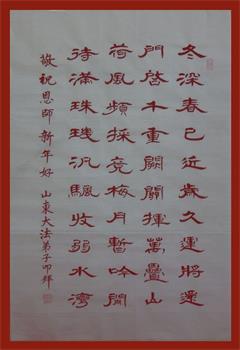 冬深春已近歲久運將還
門啓千重闕關揮萬疊山
荷風頻採竞梅月暫吟閒
待滿珠璣汎颿收弱水灣
敬祝恩師新年好 山東大法弟子叩拜